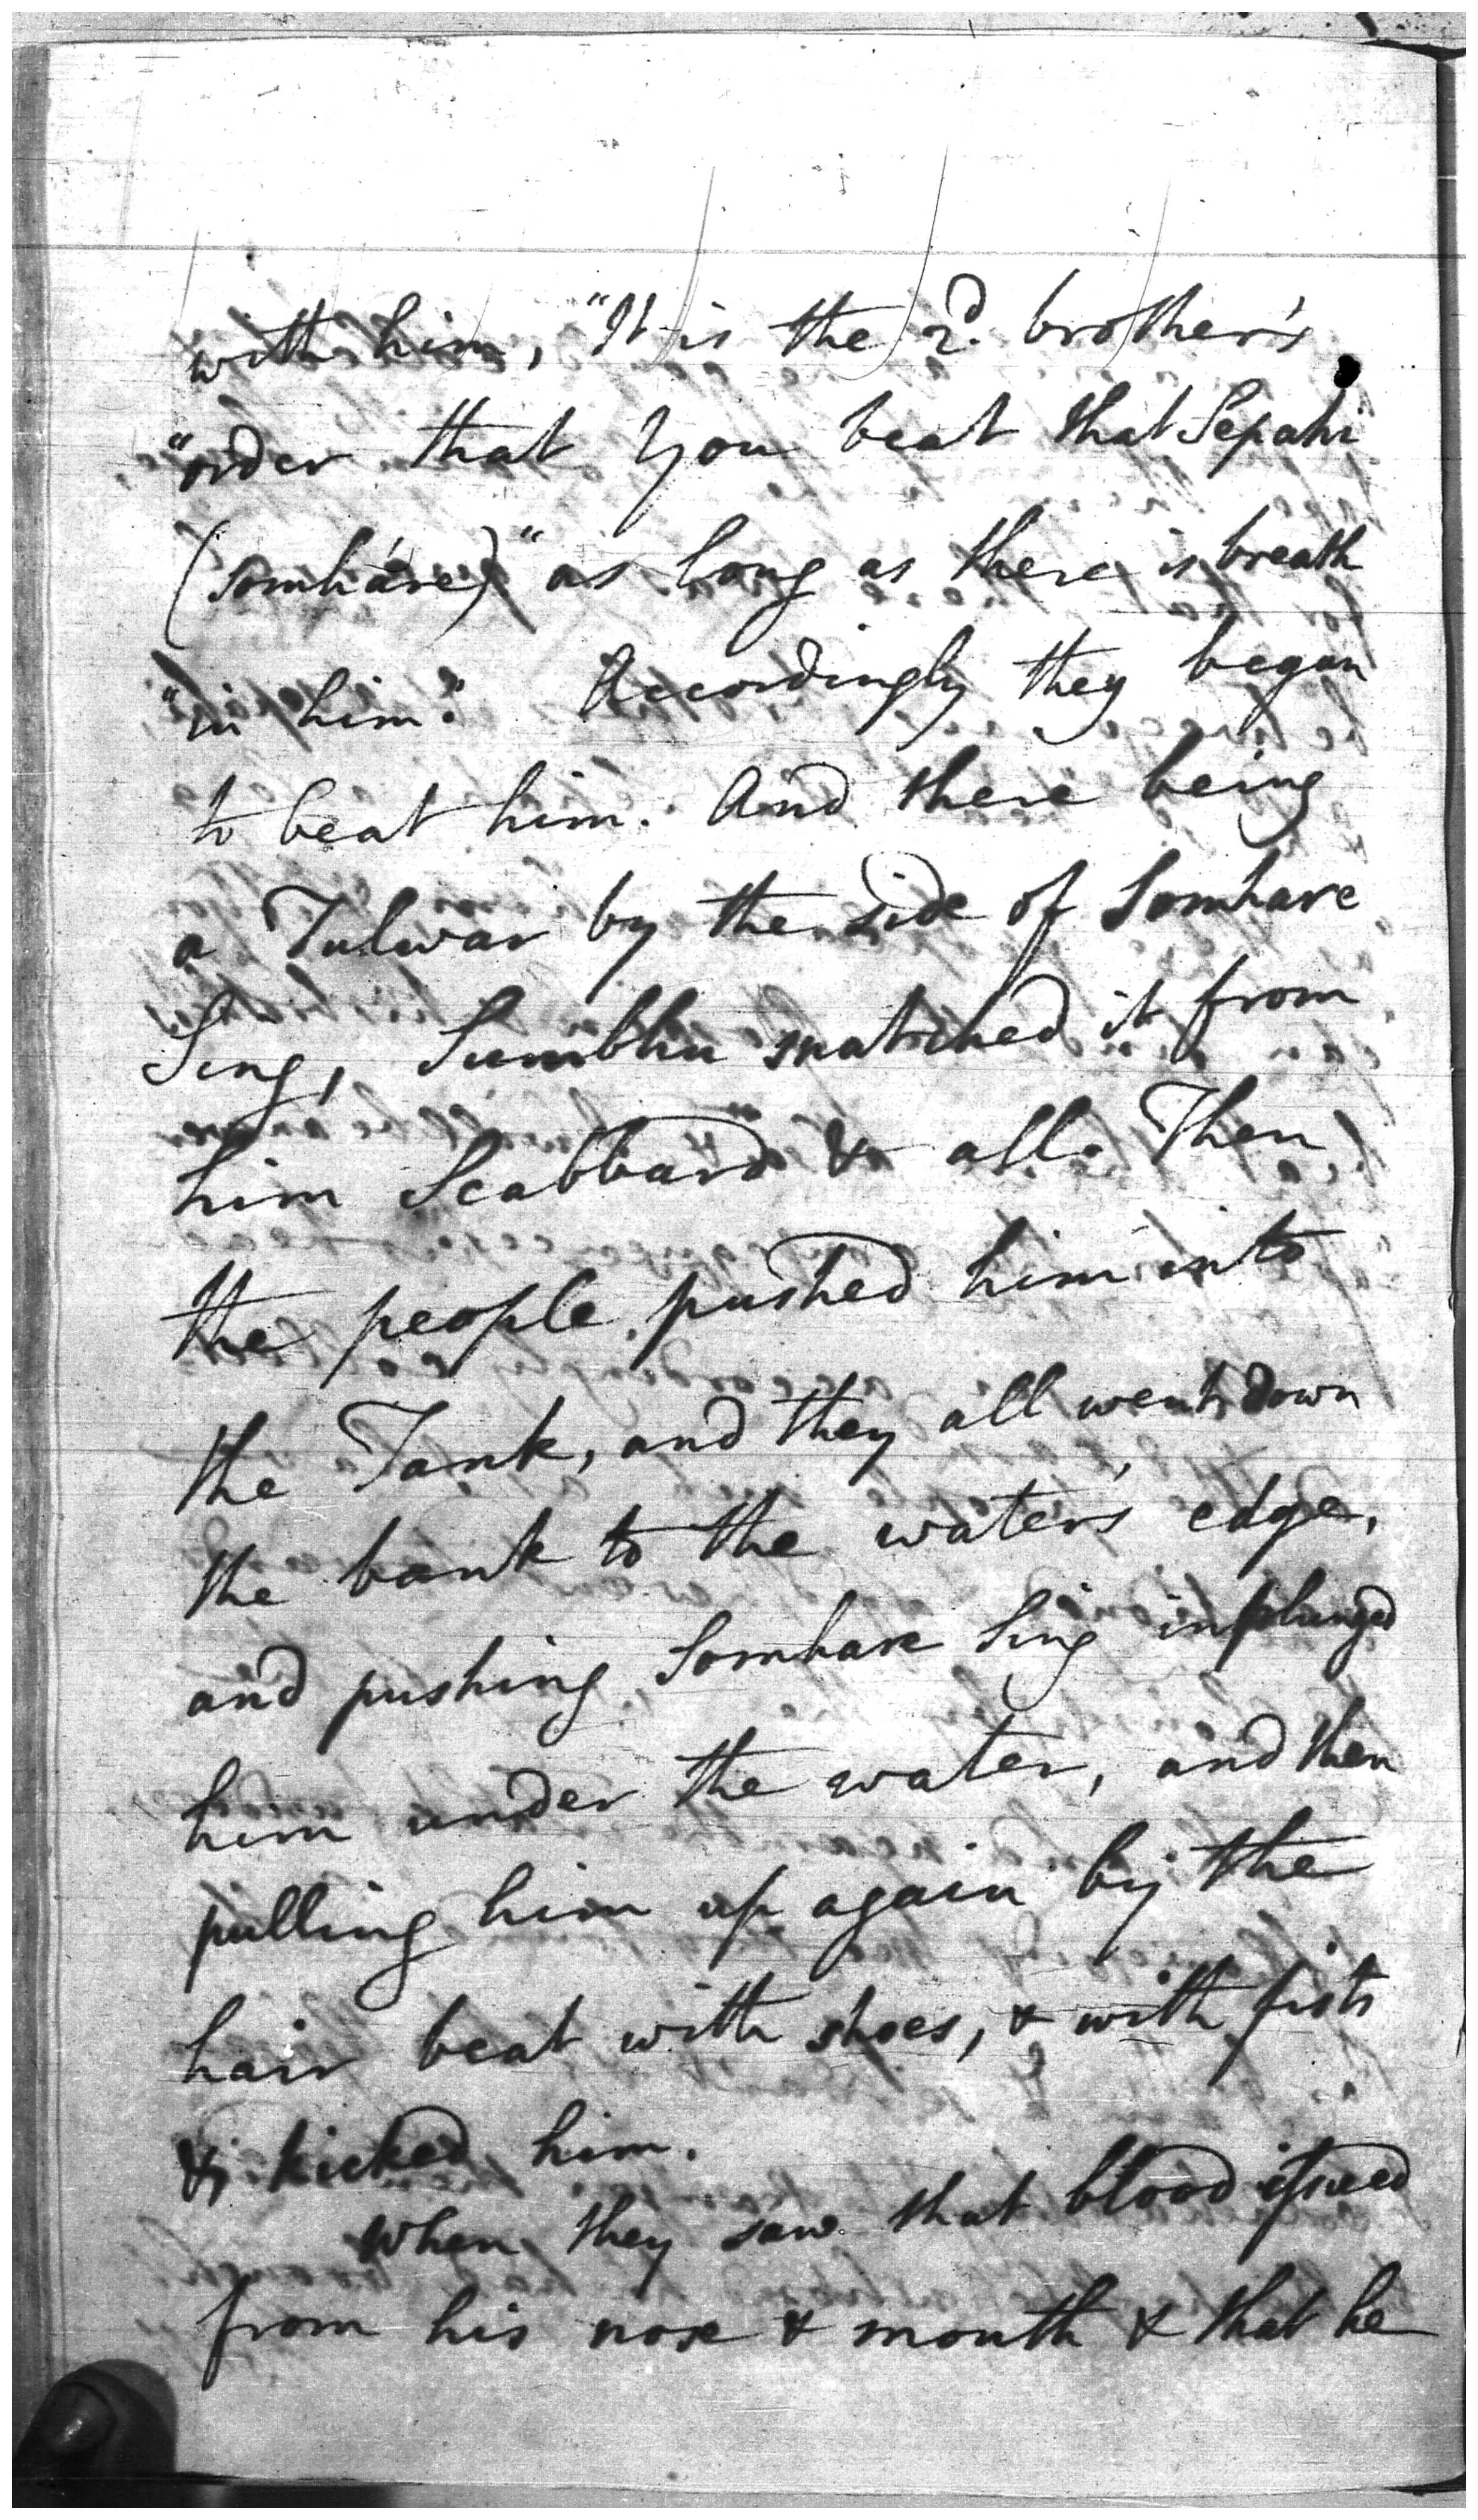 with him, "It is the 2d. brother's
"order that you beat that Sepahi
(Somháre)" as long as there is breath
"in him." Accordingly they began
to beat him. And there being
a Tulwar by the side of Somhare
Sing, Sumbhu snatched it from
him Scabbard & all. Then
the people pushed him into
the Tank, and they all went down
the bank to the water's edge,
and pushing Somhare Sing in plunged
him under the water, and then
pulling him up again by the
hair beat with shoes, & with fists
& kicked him.
When they saw that blood issued
from his nose & mouth & that he